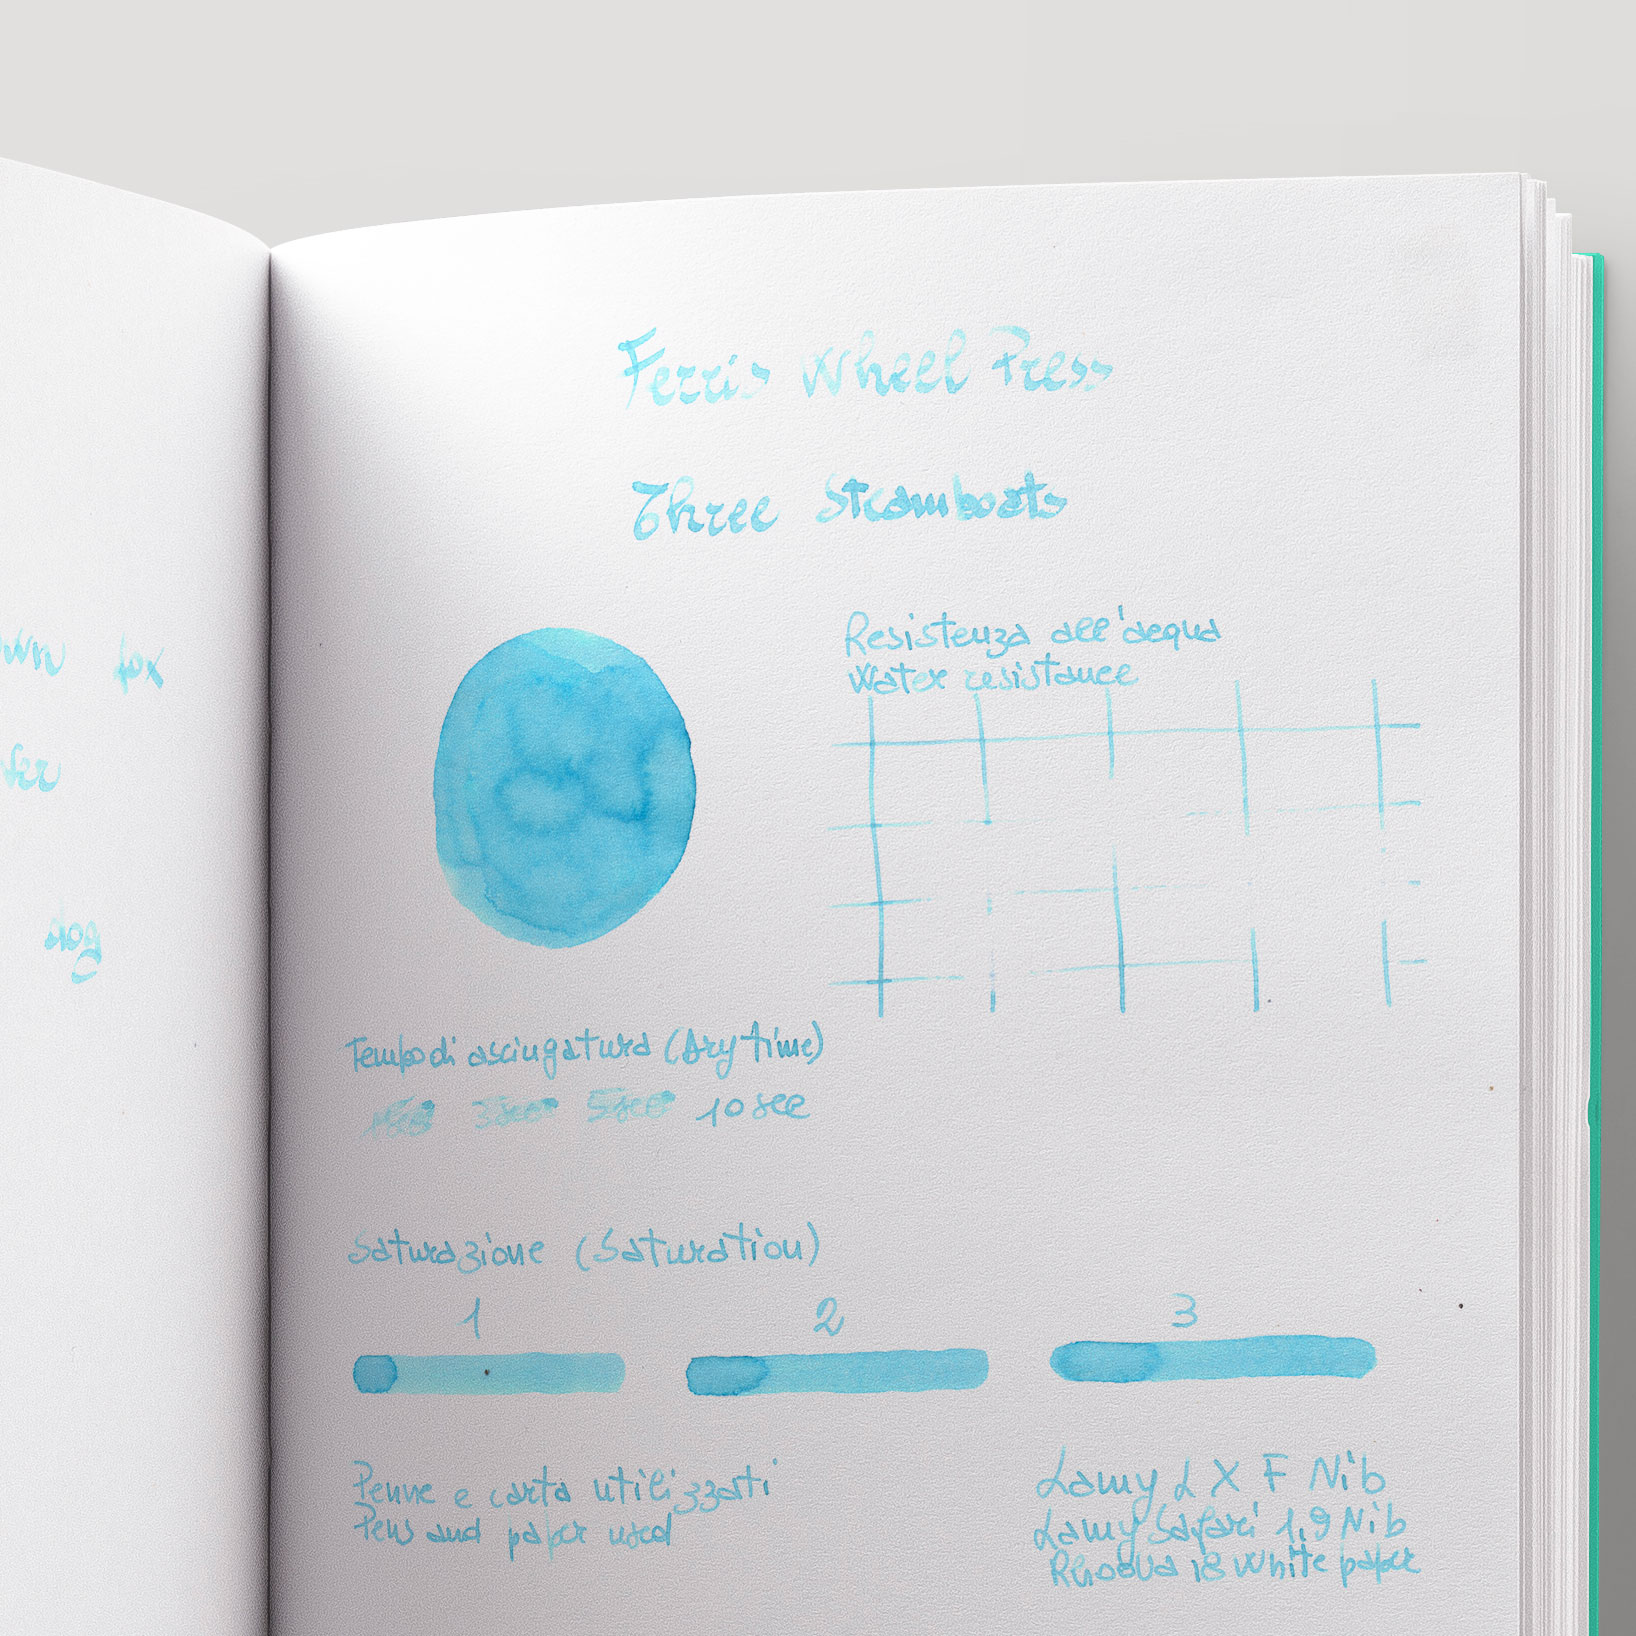 own fox
dog
Ferris Wheel Press
Three Steamboats
Resistenza all'acqua
Water resistance
Tempo di asciugatura (Dry time)
1sec 3sec 5sec 10 sec
Saturazione (Saturation)
1 2 3
Penne e carta utilizzati
Pens and paper used
Lamy LX F Nib
Lamy Safari 1,9 Nib
Rhodia 18 White paper